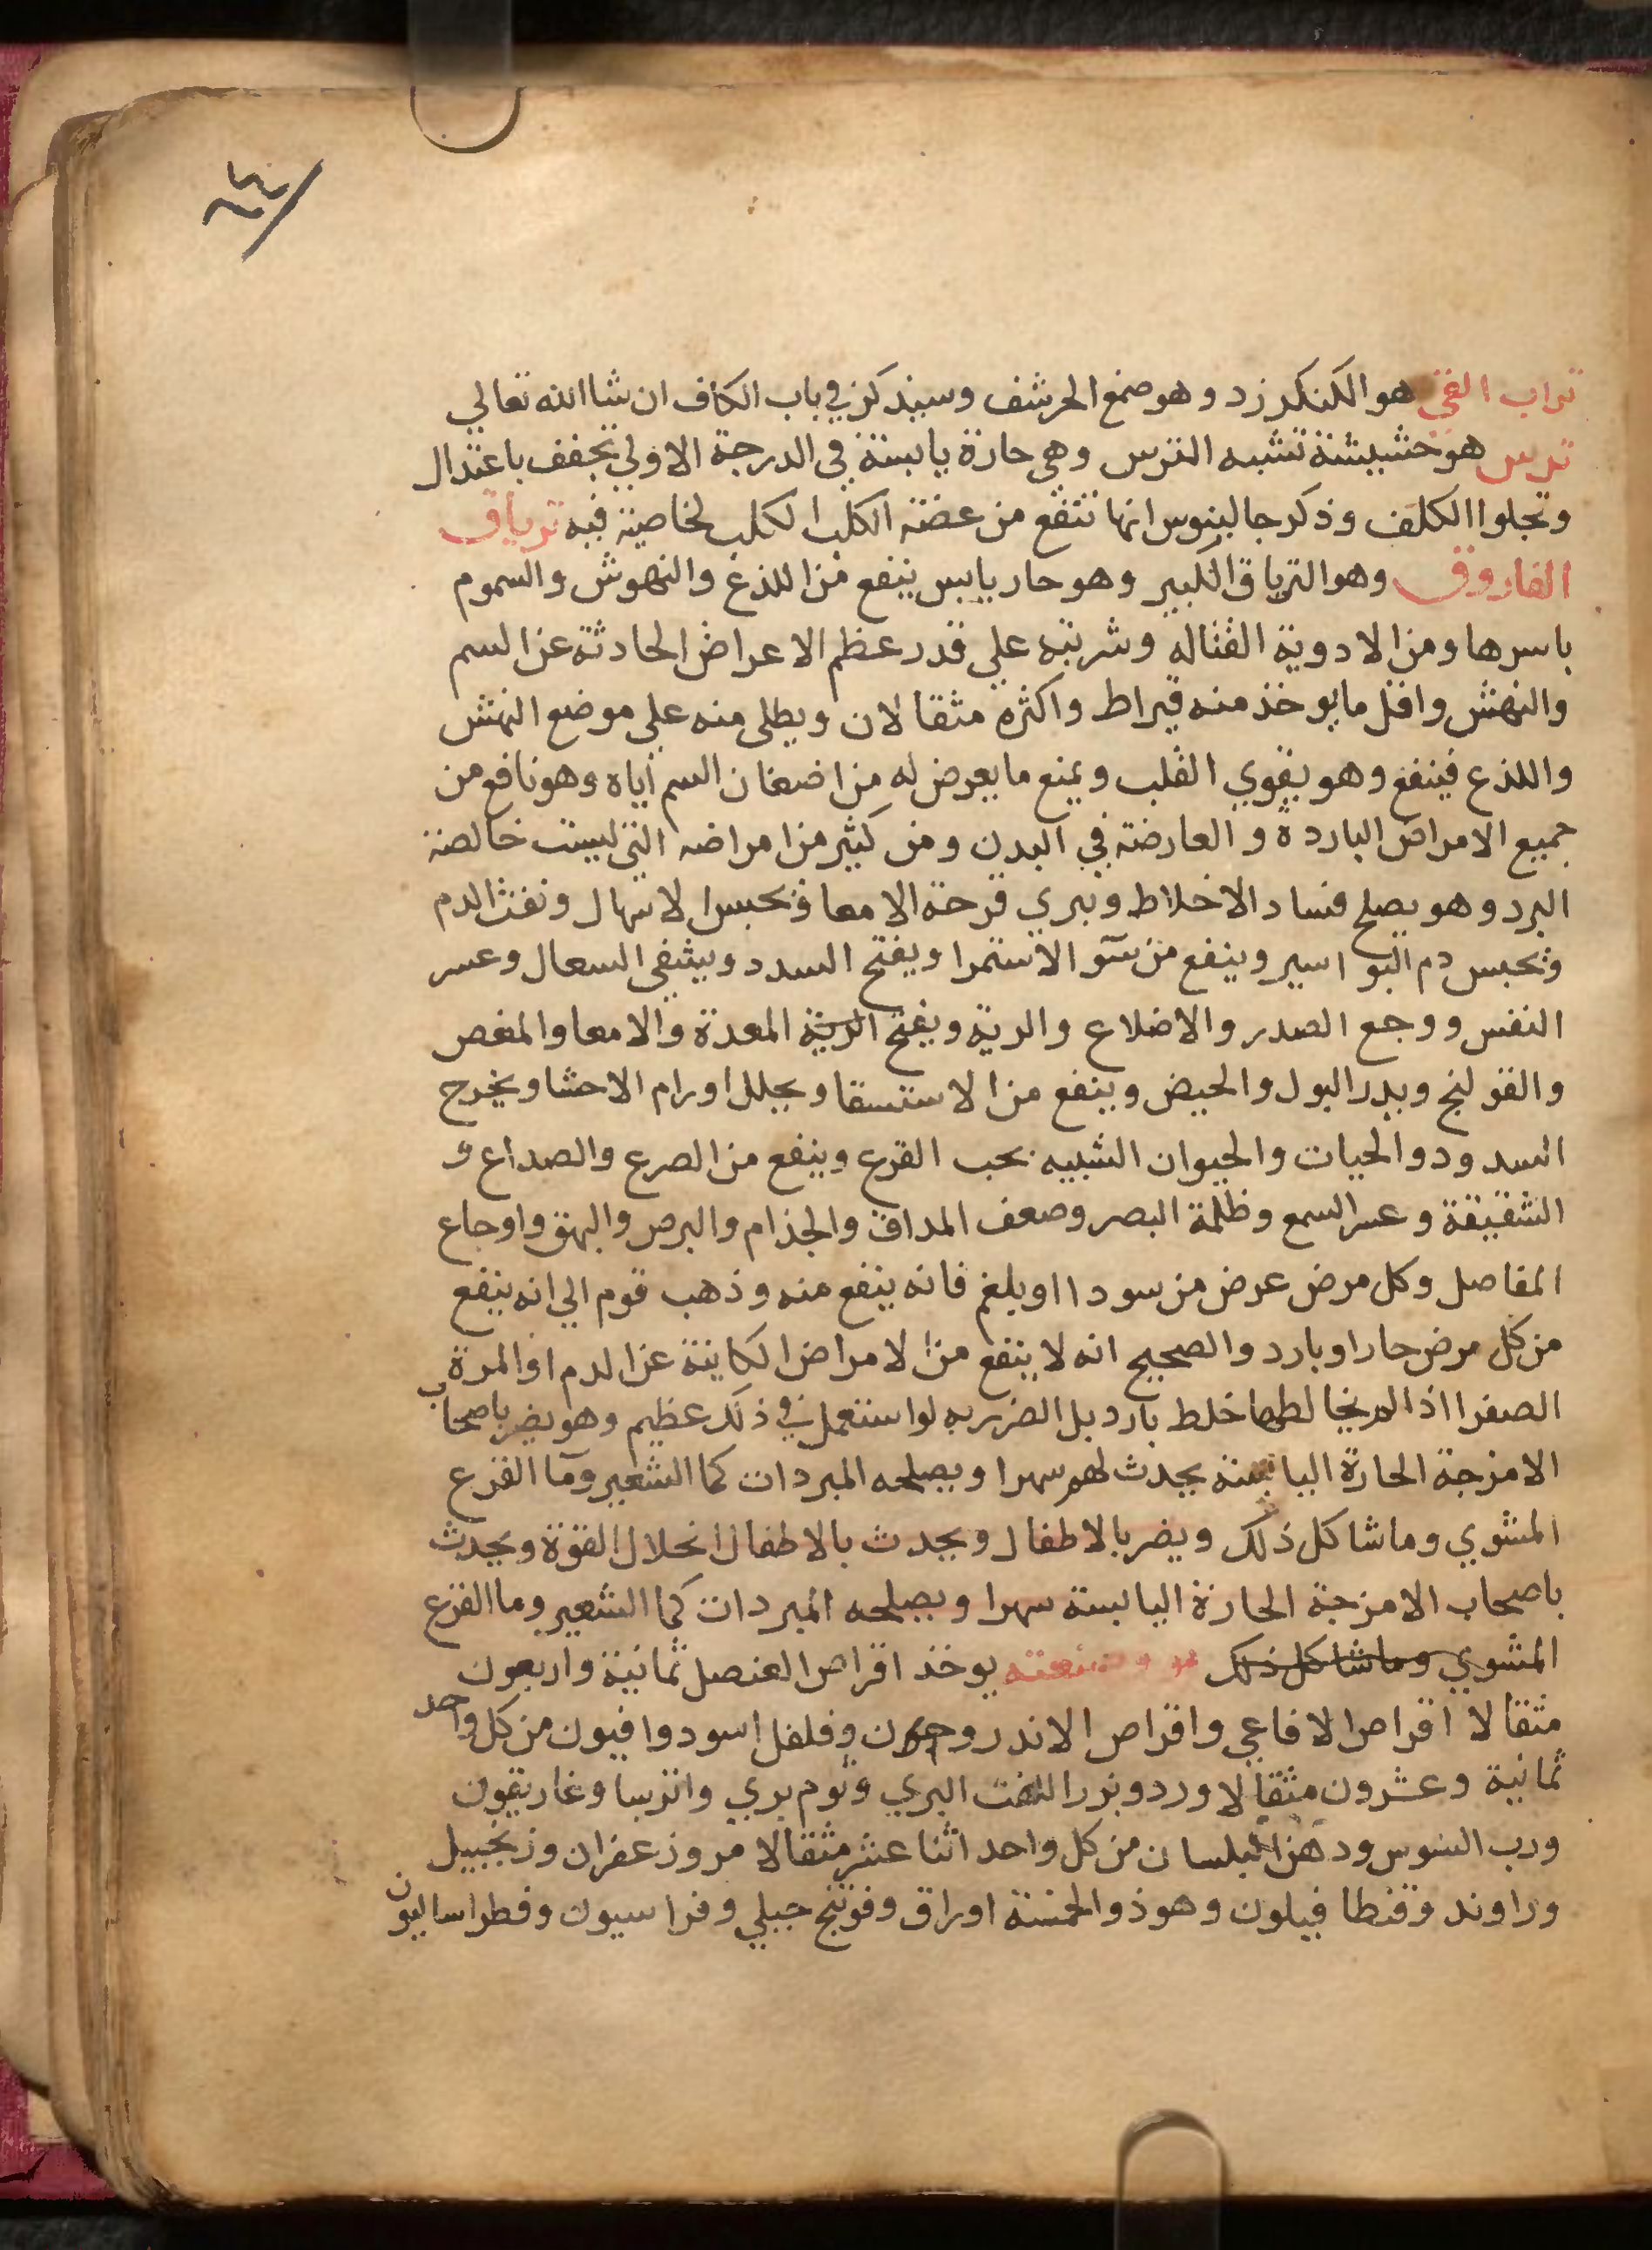 ٦٤
تراب القي هو الكنكرزد وهو صمغ الحرشف وسيذكر في باب الكاف ان شاالله تعالي
ترس هو حشيشة تشبه الترس وهي حارة يابسة في الدرجة الاولي تجفف باعتدال
وتجلوا الكلف وذكر جالينوس انها تنفع من عضة الكلب الكلب لخاصية فيه ترياق
الفاروق وهو الترياق الكبير وهو حار يابس ينفع من اللذع والنهوش والسموم
باسرها ومن الادوية القتاله وشربته علي قدر عظم الاعراض الحادثة عن السم
والنهش واقل ما يوخذ منه قيراط واكثره مثقالان ويطلي منه علي موضع النهش
واللذع فينفع وهو يقوي القلب ويمنع ما يعرض له من اضعان السم اياه وهو نافع من
جميع الامراض الباردة و العارضة في البدن ومن كثير من امراضه التي ليست خالصة
البرد وهو يصلح فساد الاخلاط ويبري قرحة الامعا ويحبس الاسهال ونفث الدم
ويحبس دم البواسير وينفع من سو الاستمرا ويفتح السدد ويشفي السعال وعسر
النفس ووجع الصدر والاضلاع والرية ويفتح الرية المعدة والامعا والمغص
والقولنج ويدر البول والحيض وينفع من الاستسقا ويحلل اورام الاحشا ويخرج
السدود والحيات والحيوان الشبيه بحب القرع وينفع من الصرع والصداع و
الشقيقة وعسر السمع وظلمة البصر وضعف المداق والجذام والبرص والبهق واوجاع
المفاصل وكل مرض عرض من سودا او بلغم فانه ينفع منه وذهب قوم الي انه ينفع
من كل مرض حار او بارد والصحيح انه لا ينفع من الامراض الكاينة عن الدم او المرة
الصفرا اذا لم يخالطها خلط بارد بل الضرر به لو استعمل في ذلك عظيم وهو يضر باصحاب
الامزجة الحارة اليابسة يحدث لهم سهرا ويصلحه المبردات كما الشعير وما القرع
المشوي وما شاكل ذلك ويضر بالاطفال ويحدث بالاطفال انحلال القوة ويحدث
باصحاب الامزجة الحارة اليابسة سهرا ويصلحه المبردات كما الشعير وما القرع
المشوي وما شاكل ذلك وصنعته يوخذ اقراص العنصل ثمانية واربعون
مثقالا اقراص الافاعي واقراص الاندروخرون وفلفل اسود وافيون من كل واحد
ثمانية وعشرون مثقالا ورد وبزر اللفت البري وثوم بري وانرسا وغاريقون
ورب السوس ودهن البلسان من كل واحد اثنا عشر مثقالا مر وزعفران وزنجبيل
وراوند وفنطافيلون وهو ذو الخمسة اوراق وفوتنج جبلي وفراسيون وفطراساليون